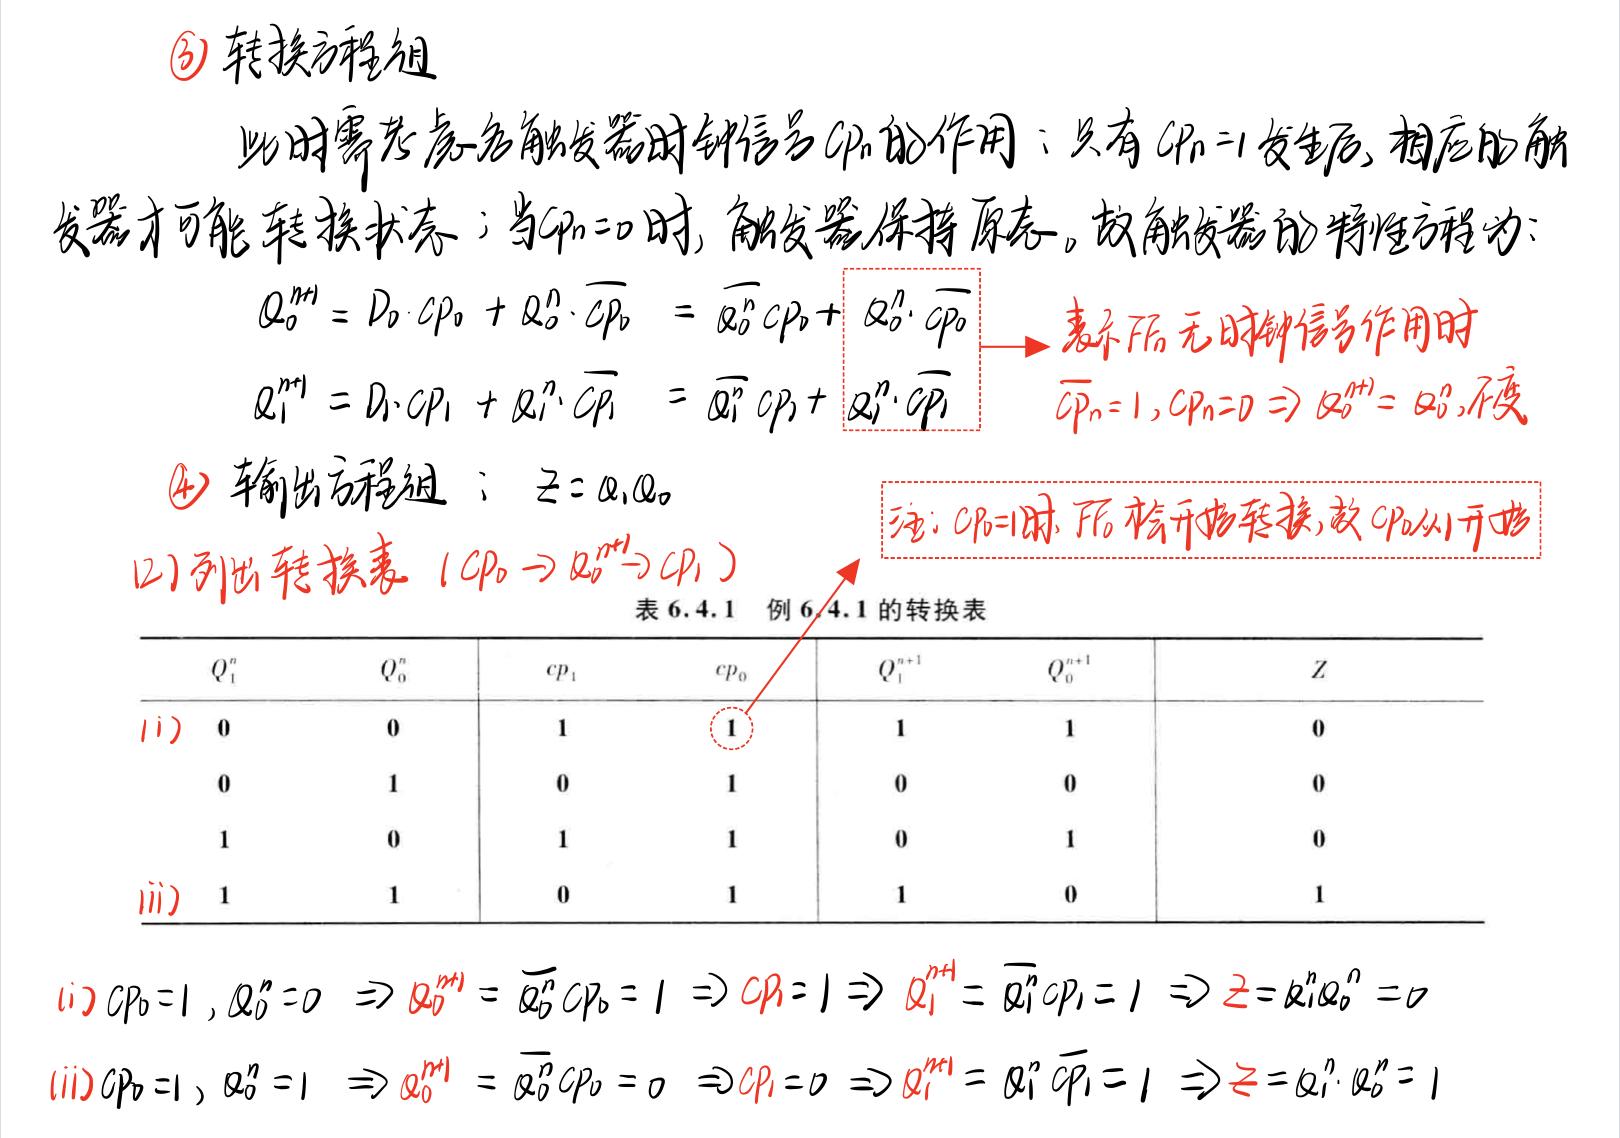 ③ 转换方程组
此时需考虑各触发器时钟信号cpₙ的作用：只有cpₙ=1发生后，相应的触
发器才可能转换状态；当cpₙ=0时，触发器保持原态。故触发器的特性方程为：
Q₀ⁿ⁺¹ = D₀·cp₀ + Q₀ⁿ·c̅p̅₀ = Q̅₀ⁿ cp₀ + Q₀ⁿ·c̅p̅₀
Q₁ⁿ⁺¹ = D₁·cp₁ + Q₁ⁿ·c̅p̅₁ = Q̅₁ⁿ cp₁ + Q₁ⁿ·c̅p̅₁
表示FFₙ无时钟信号作用时
c̅p̅ₙ=1, cpₙ=0 ⇒ Q₀ⁿ⁺¹ = Q₀ⁿ,不变
④ 输出方程组： Z=Q₁Q₀
注：cp₀=1时，FF₀才会开始转换，故cp₀从1开始
(2) 列出转换表 (cp₀ → Q₀ⁿ⁺¹ → cp₁)
表 6.4.1 例 6.4.1 的转换表
Q₁ⁿ Q₀ⁿ cp₁ cp₀ Q₁ⁿ⁺¹ Q₀ⁿ⁺¹ Z
(i) 0 0 1 1 1 1 0
0 1 0 1 0 0 0
1 0 1 1 0 1 0
(ii) 1 1 0 1 1 0 1
(i) cp₀=1, Q₀ⁿ=0 ⇒ Q₀ⁿ⁺¹ = Q̅₀ⁿ cp₀ = 1 ⇒ cp₁=1 ⇒ Q₁ⁿ⁺¹ = Q̅₁ⁿ cp₁ = 1 ⇒ Z=Q₁ⁿQ₀ⁿ=0
(ii) cp₀=1, Q₀ⁿ=1 ⇒ Q₀ⁿ⁺¹ = Q̅₀ⁿ cp₀ = 0 ⇒ cp₁=0 ⇒ Q₁ⁿ⁺¹ = Q₁ⁿ c̅p̅₁ = 1 ⇒ Z=Q₁ⁿ·Q₀ⁿ=1